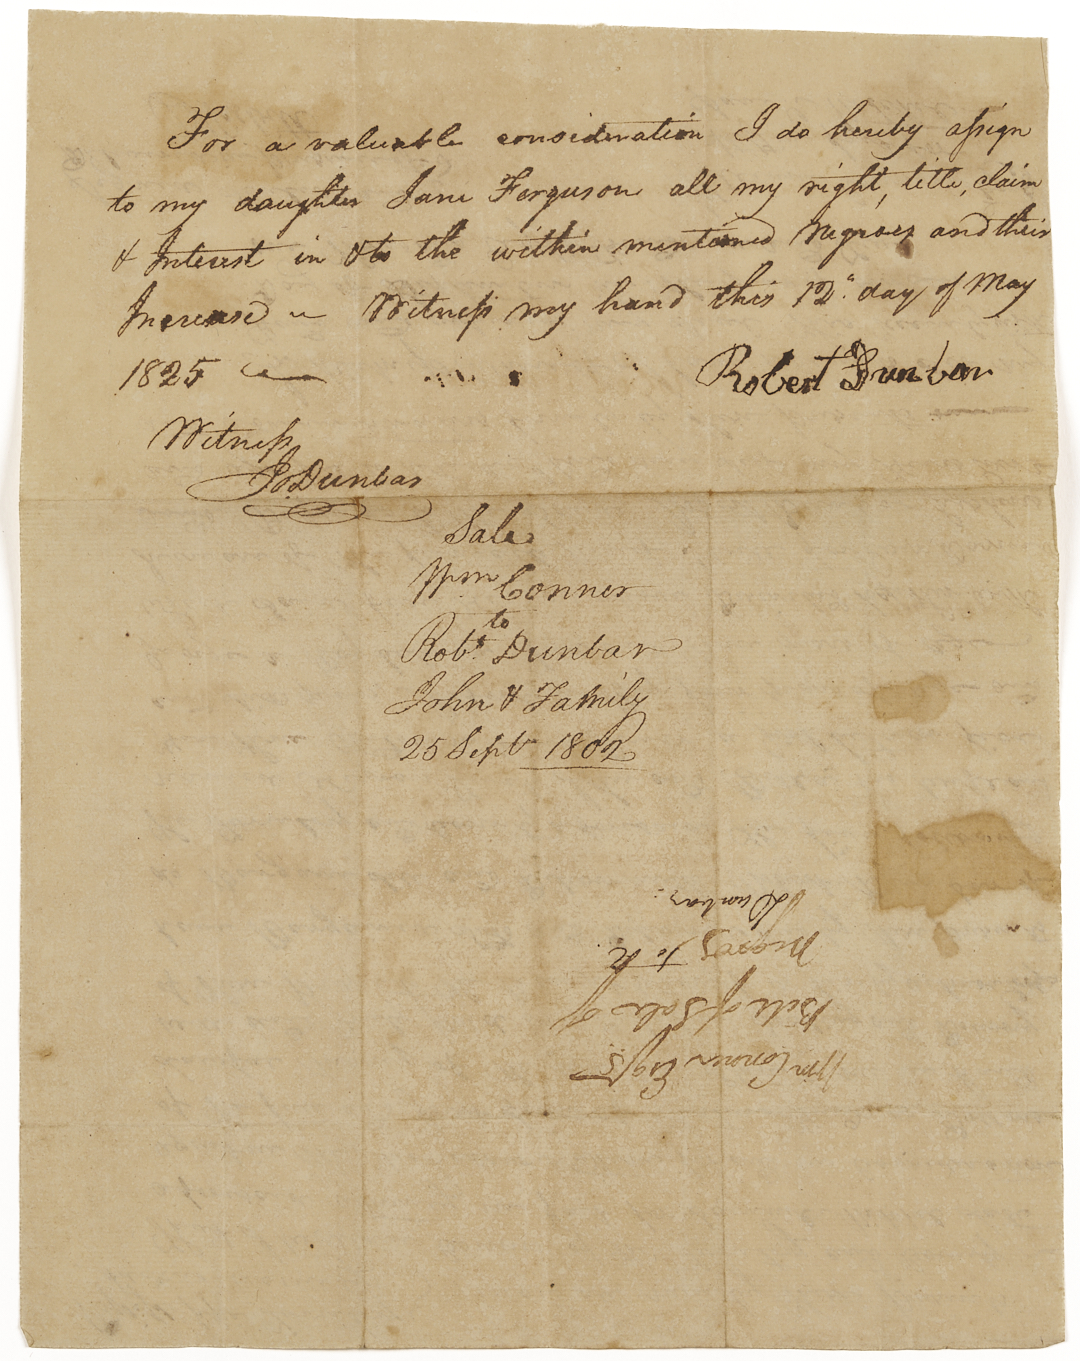 For a valuable consideration I do hereby assign
to my daughter Jane Ferguson all my right, title, claim
& Interest in & to the within mentioned Negroes and their
Increase — Witness my hand this 12" day of May
1825 —
Robert Dunbar
Witness
Jo. Dunbar
Sale
Wm Conner
to
Robt. Dunbar
John & Family
25 Septr 1802
Wm Conner Esqr's
Bill of Sale of
Negroes to R.
Dunbar.